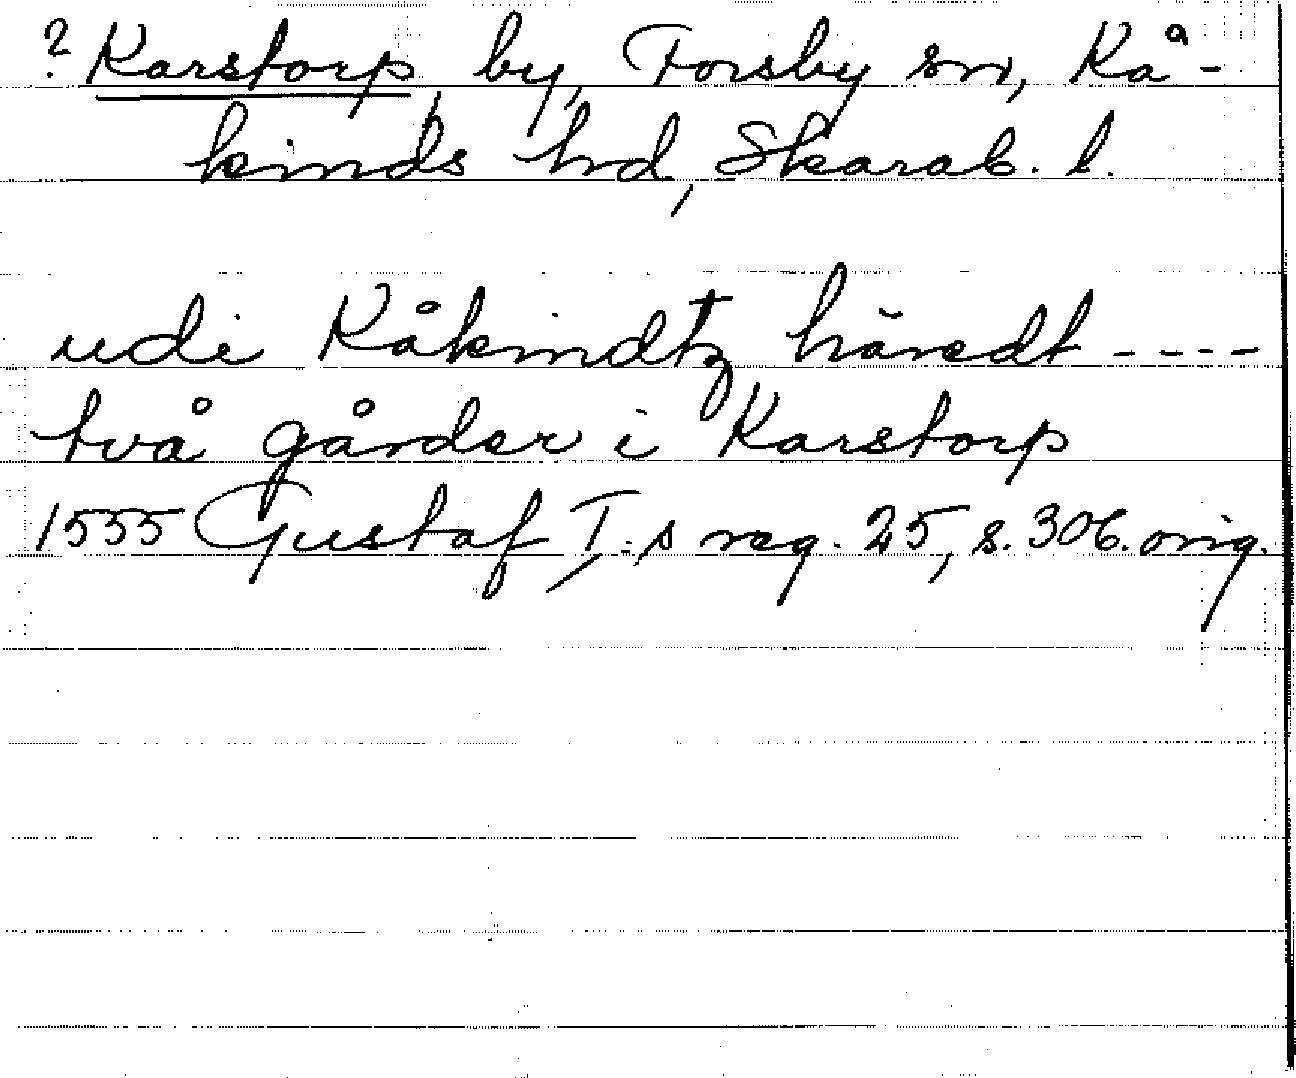 ? Karstorp, by, Forsby sn, Kå-
kinds hd, Skarab. l.
udi Kåkindtz häredt ----
två gårder i Karstorp
1555 Gustaf I:s reg. 25, s. 306. orig.